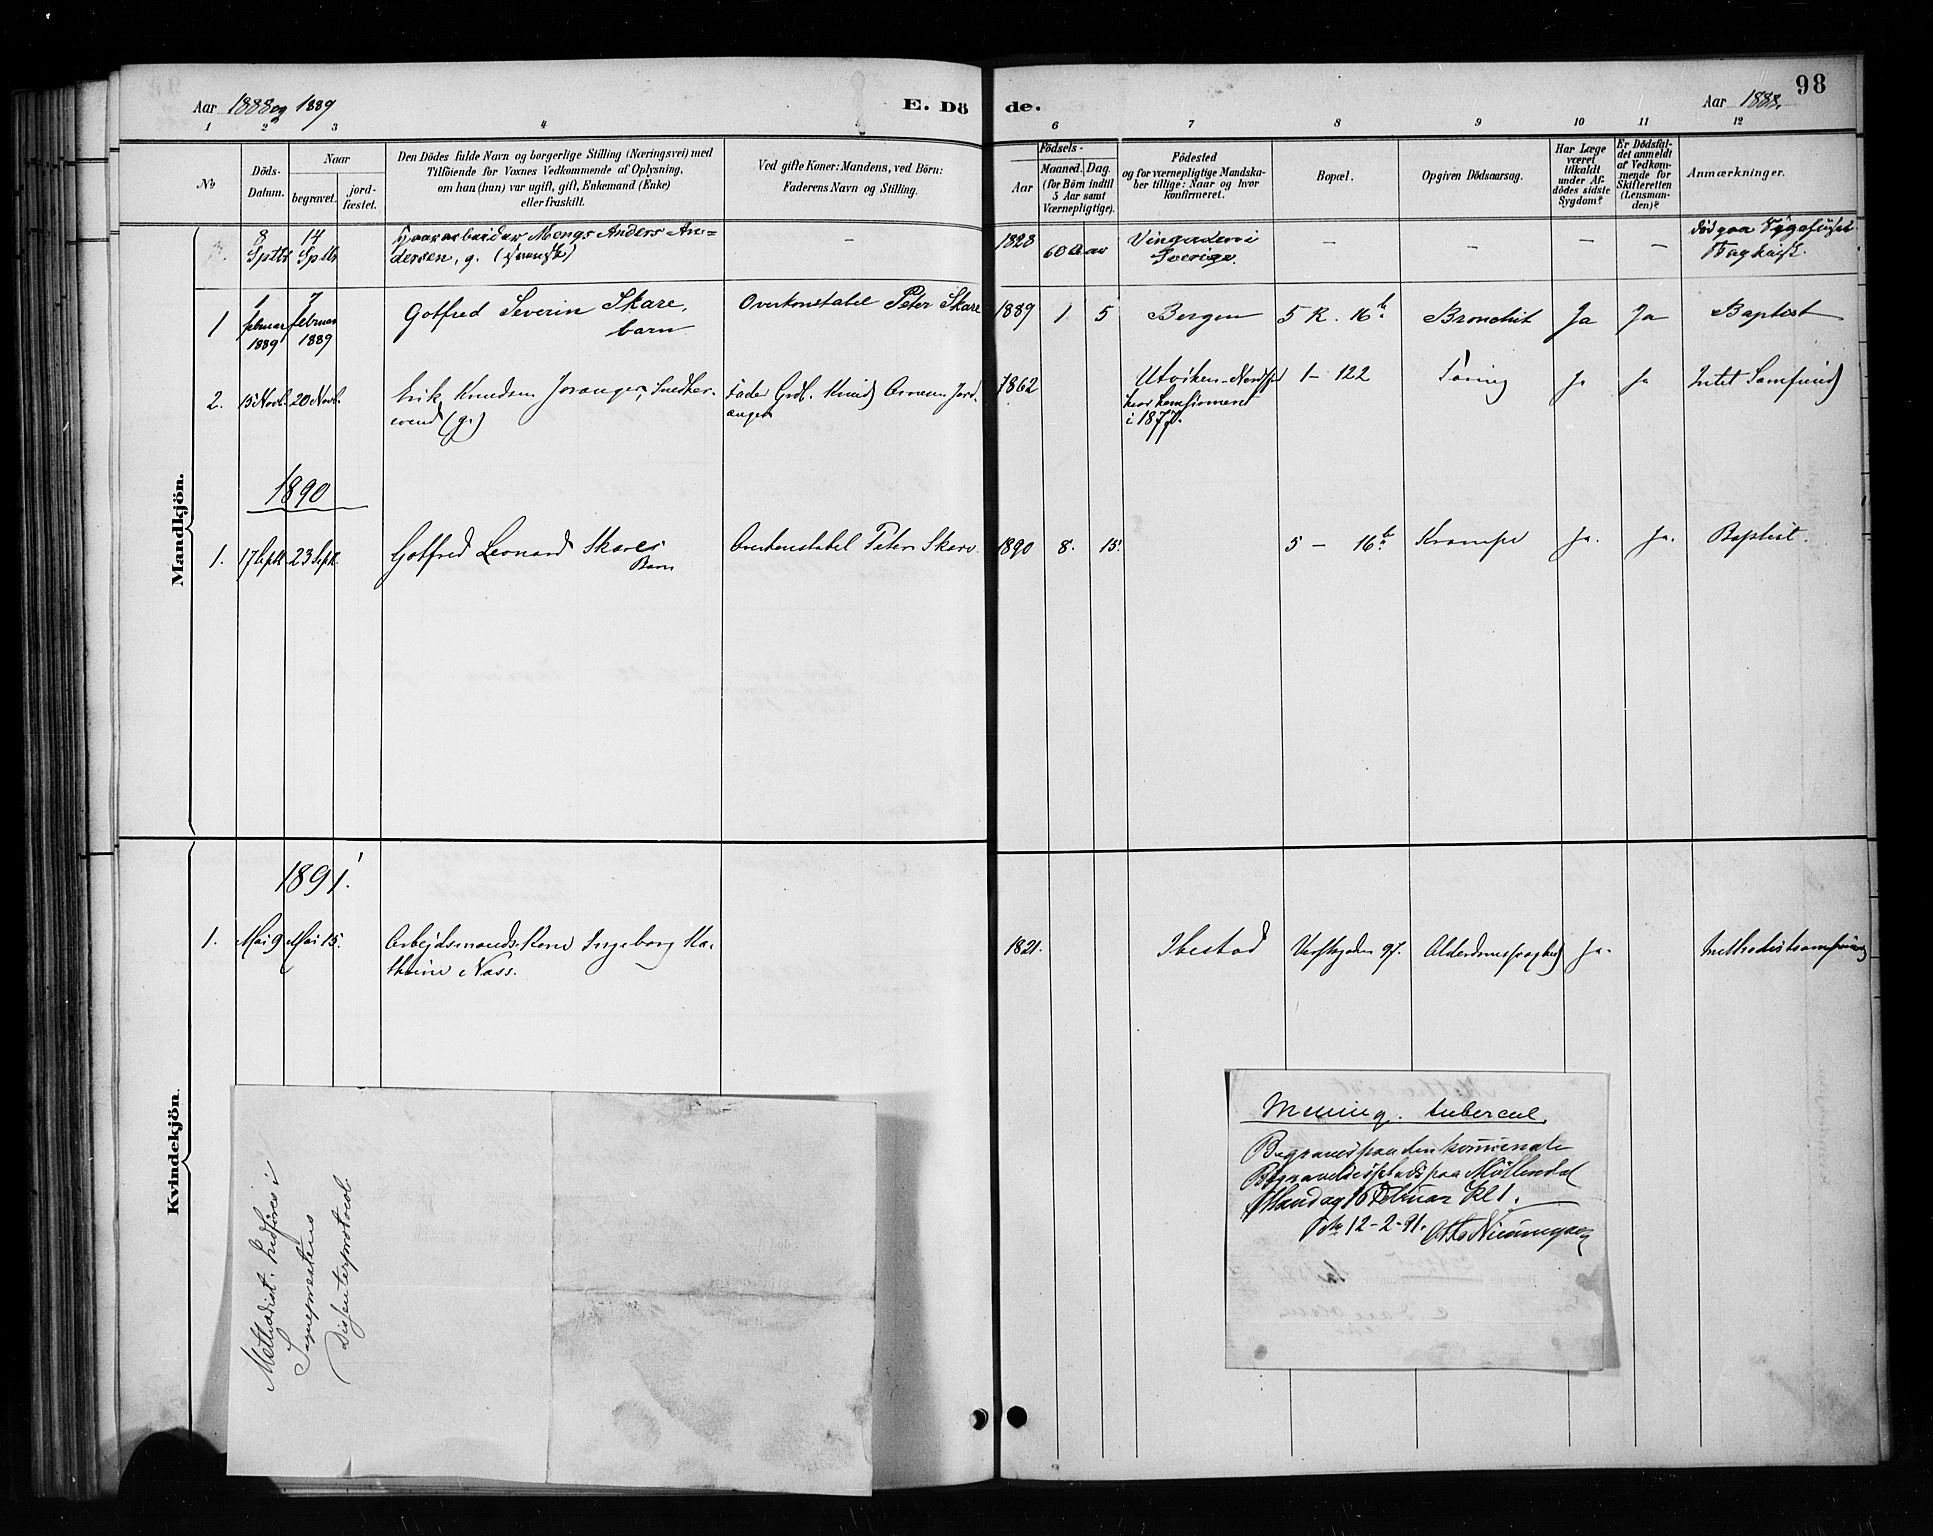 Aar 1888 og 1889
E. Dö
de.
Aar 1888.
98
1 2 3 4 5 6 7 8 9 10 11 12
No
Döds-Datum.
Naar
begravet.
jord-fæstet.
Den Dödes fulde Navn og borgerlige Stilling (Næringsvei) med
Tilföiende for Voxnes Vedkommende af Oplysning,
om han (hun) var ugift, gift, Enkemand (Enke)
eller fraskilt.
Ved gifte Koner: Mandens, ved Börn:
Faderens Navn og Stilling.
Födsels-
Aar
Maaned. Dag.
(for Börn indtil
5 Aar samt
Værnepligtige).
Födested
og for værnepligtige Mandska-
ber tillige: Naar og hvor
konfirmeret.
Bopæl.
Opgiven Dödsaarsag.
Har Læge
været
tilkaldt
under Af-
dödes sidste
Sygdom?
Er Dödsfal-
det anmeldt
af Vedkom-
mende for
Skifteretten
(Lensman-
den)?
Anmærkninger.
Mandkjön.
8 Sptbr 14 Sptbr
Anders An-
dersen, g.
– 1828 60 Aar
Sverige.
– – – –
1 1 februar 1889 7 februar 1889
Gotfred Severin Skare,
barn
Overkonstabel Peter Skare
1889 1 5 Bergen 5 R. 16 b. Bronchit Ja Ja Baptist
2. 15 Novb. 20 Novb.
Erik Knudsen Joranger, Snedker-
svend (g.)
Fader Grdb. Knud
1862
Utviken - Nordfjord
hvor konfirmeret
i 1877.
1 – 122 Tæring Ja Ja Intet Samfund
1890
1. 17 Sept. 23 Sept.
Gotfred Leonard Skares
Barn
Overkonstabel Peter Skare.
1890 8. 15. 5 – 16 b. Krampe Ja. Ja. Baptist.
Kvindekjön.
1891.
1. Mai 9 Mai 15.
Arbejdsmandskone Ingeborg Ka-
thrine Nass.
1821. Ibestad 97. Alderdomssvaghed Ja. Methodistsamfund
Methodist. Indföres i
Sognepræstens
Dissenterprotocol.
Mening. tubercul.
Begraves paa den kommunale
Begravelsesplads paa Möllendal
Mandag 16 Februar Kl 1.
12-2-91.